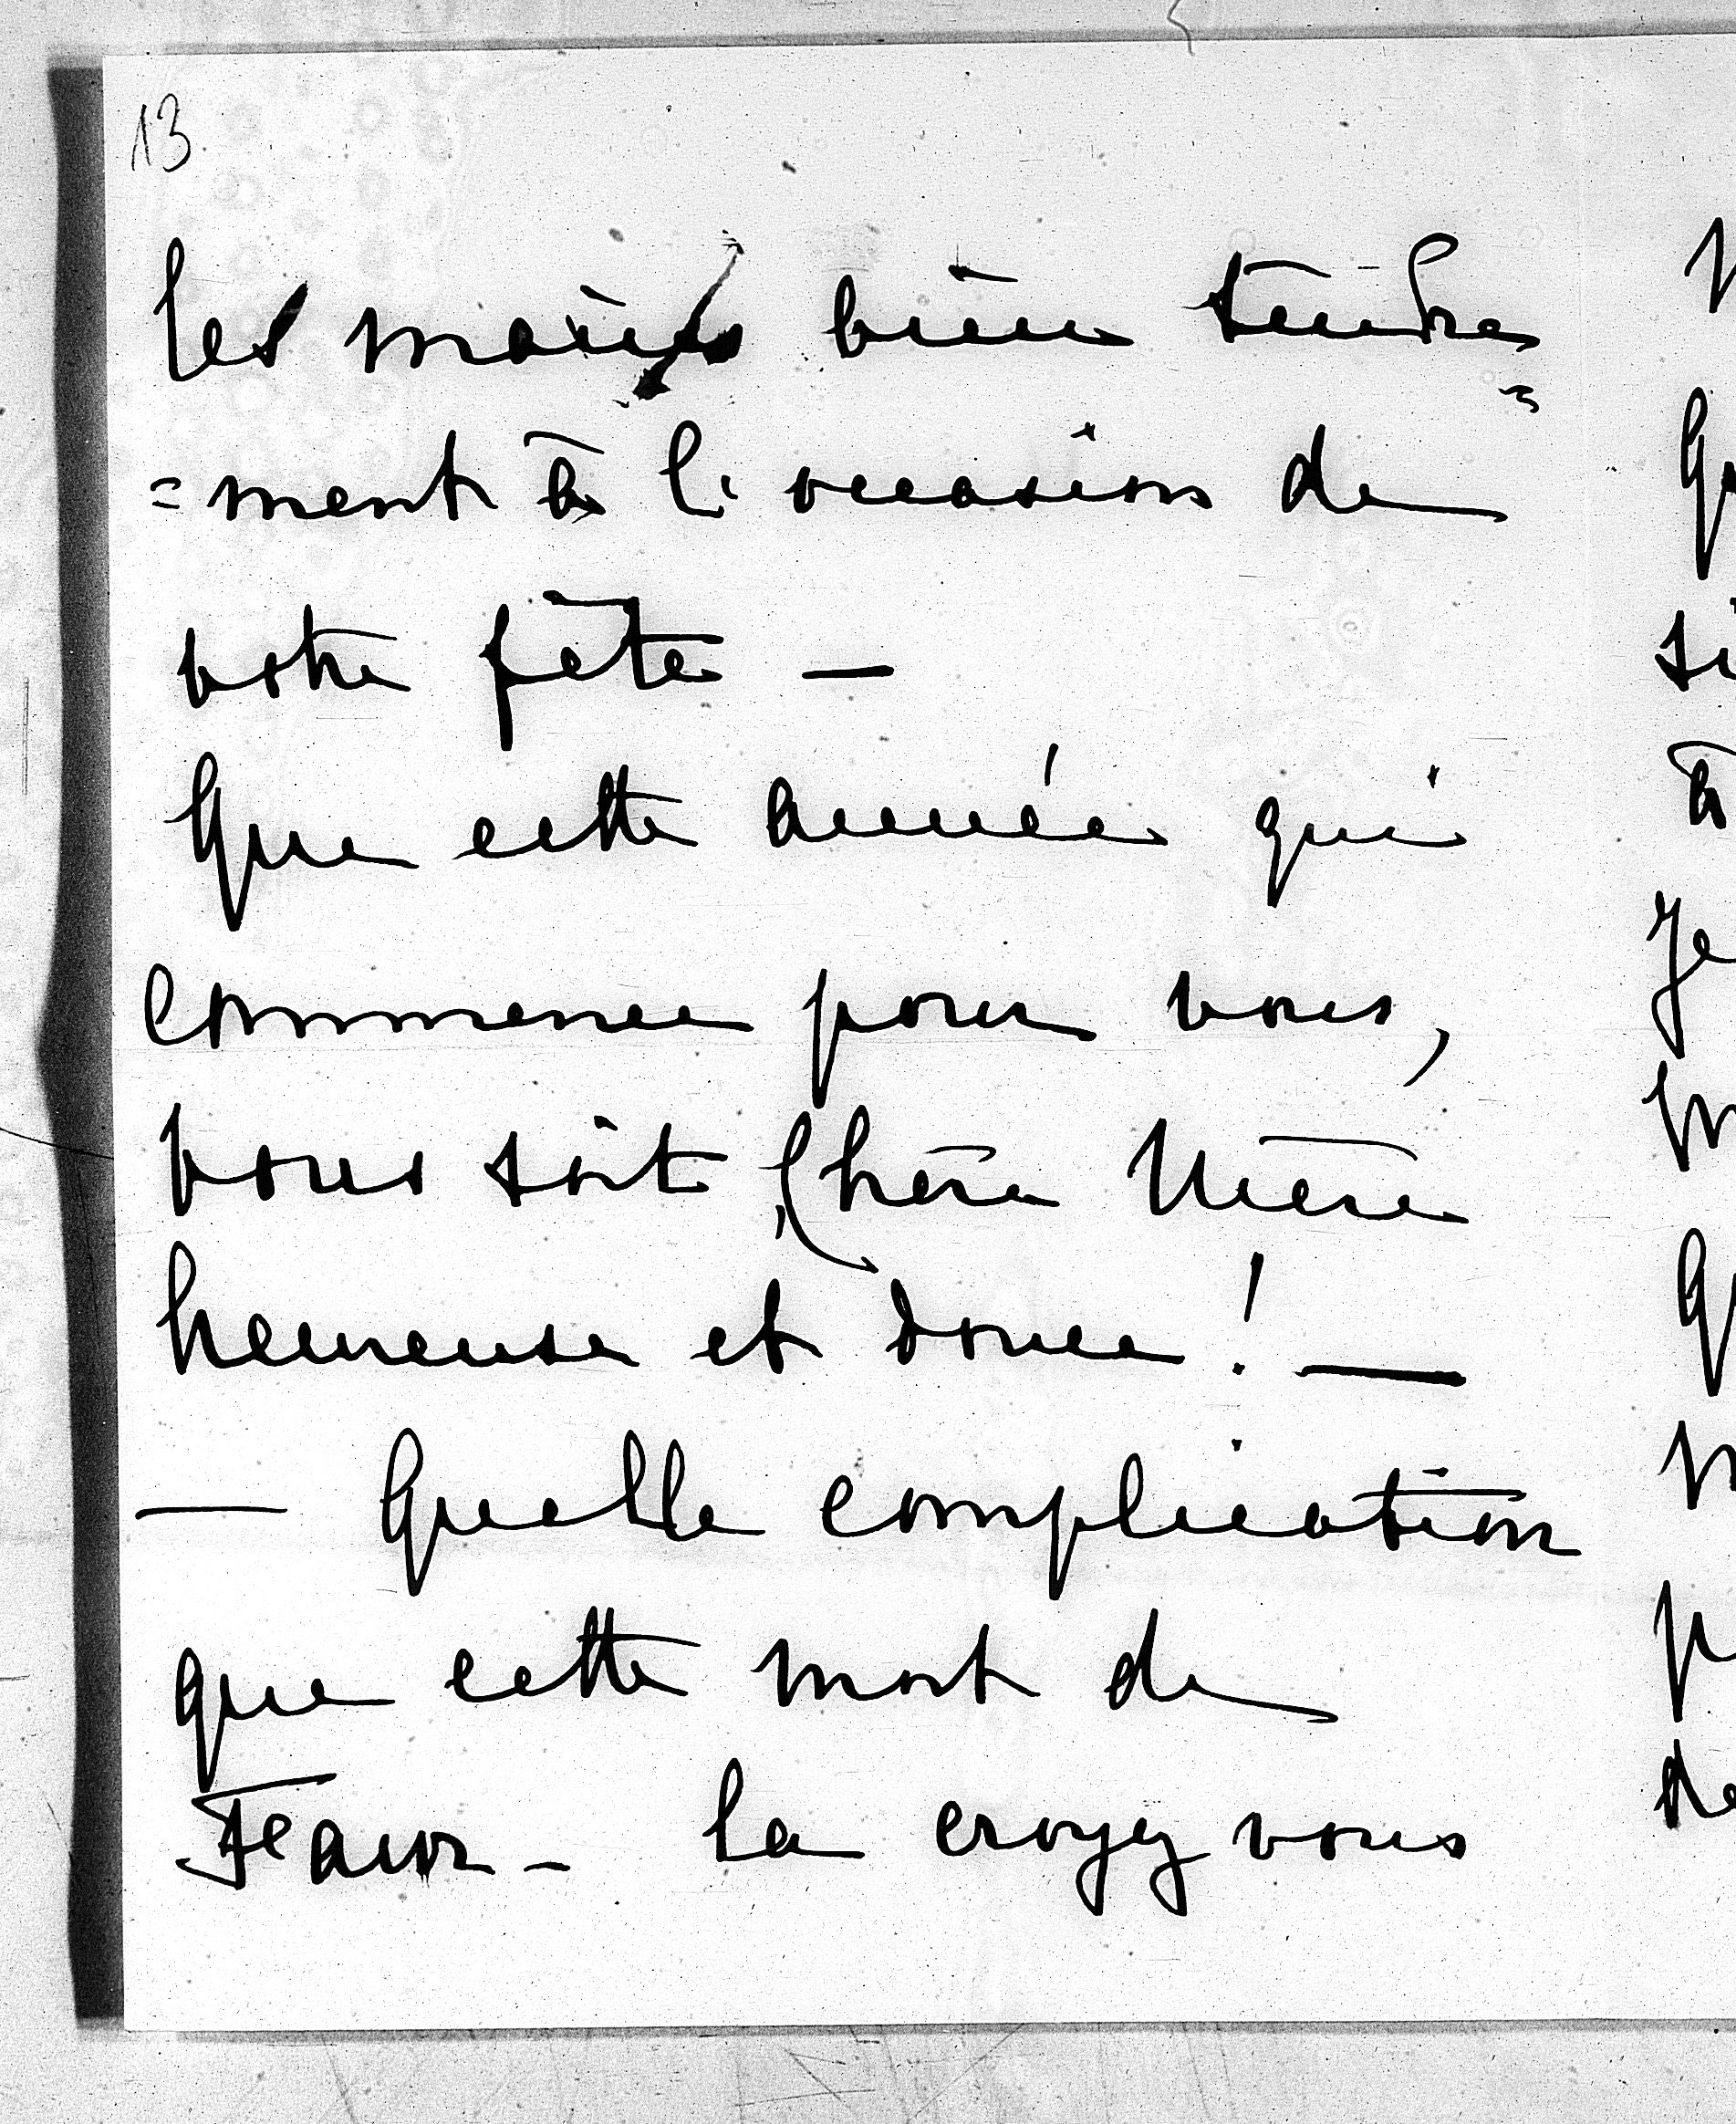 13
les mains bien tendre=
=ment à l'occasion de
votre fête —
Que cette année qui
commence pour vous,
vous soit, Chère Mère
heureuse et douce ! —
— Quelle complication
que cette mort de
- la croyez vous